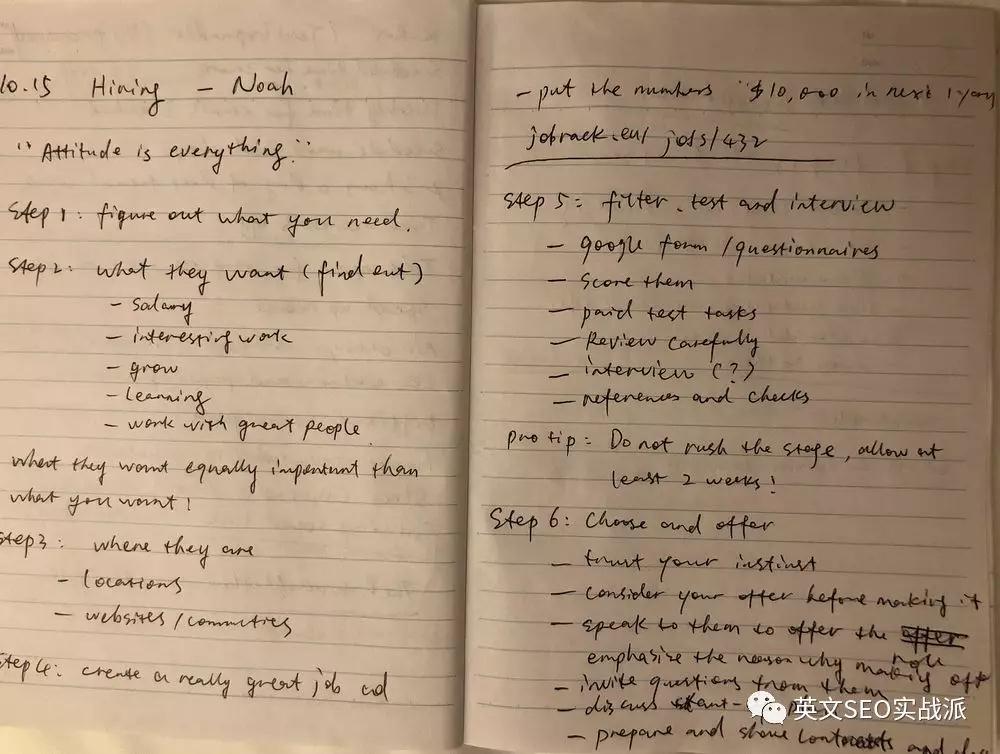 10.15 Hiring - Noah
"Attitude is everything."
Step 1: figure out what you need.
Step 2: what they want (find out)
- salary
- interesting work
- grow
- learning
- work with great people
what they want equally important than
what you want!
Step 3: where they are
- locations
- websites/commuties
Step 4: create a really great job ad
- put the numbers "$10,000 in next 1 year
jobrack.eu/jobs/432
Step 5: filter. test and interview
- google form/questionnaires
- Score them
- paid test tasks
- Review carefully
- interview (?)
- references and checks
pro tip: Do not rush the stage, allow at
least 2 weeks!
Step 6: Choose and offer
- trust your instinst
- consider your offer before making it
- speak to them to offer the offer role
emphasize the reason why making off
- invite questions from them
- discuss start-
- prepare and share contracts and
英文SEO实战派